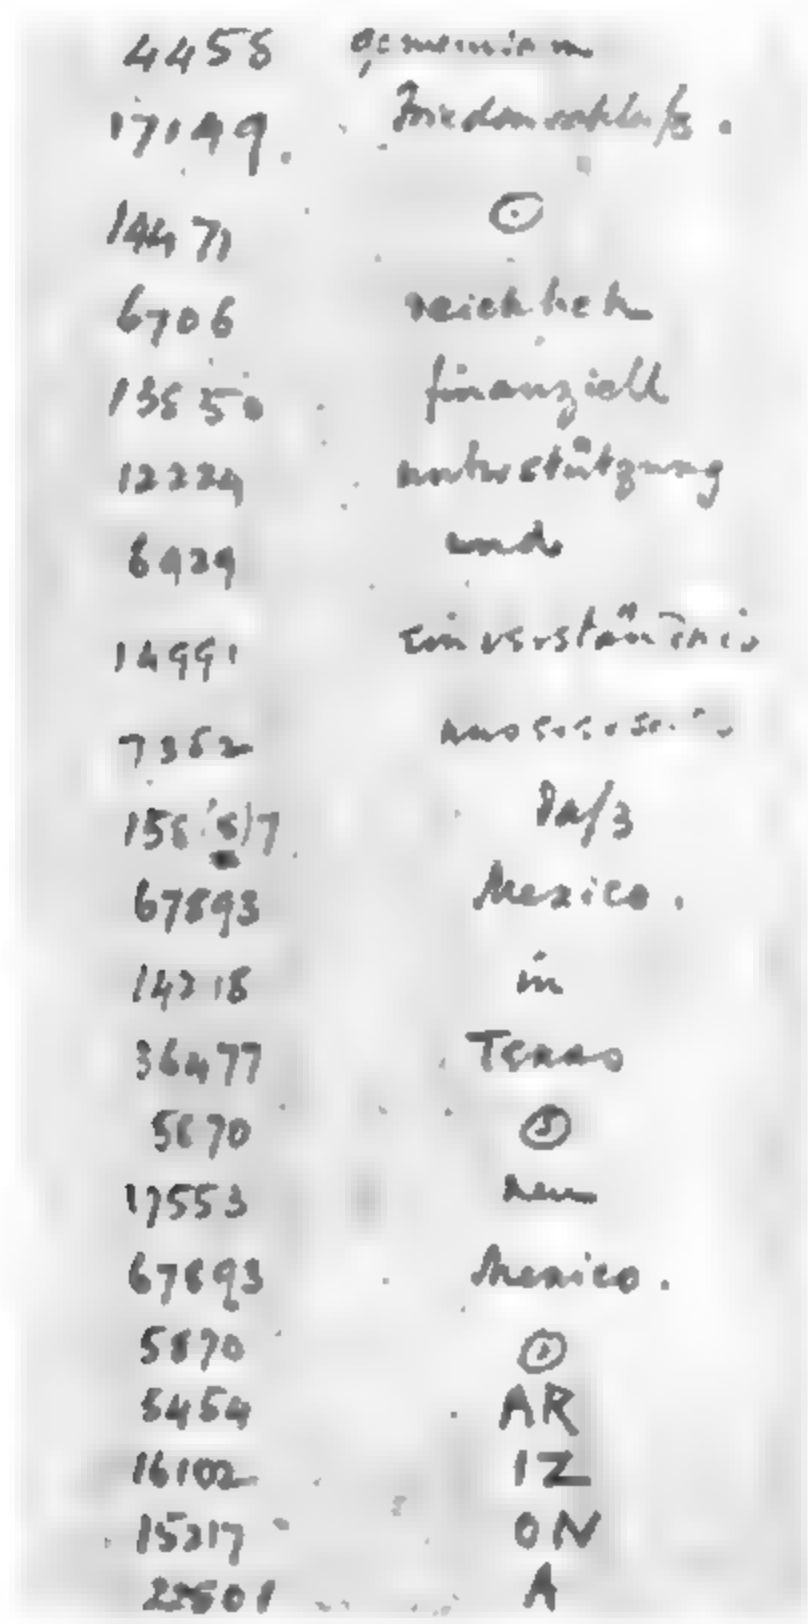 4458 gemeinsam
17149. Friedensschluß.
14471 ⊙
6706 reichlich
13850 finanziell
12224 unterstützung
6929 und
14991 einverständnis
7382 unsererseits
158(5)7 daß
67893 Mexico.
14218 in
36477 Texas
5670 ⊙
17553 neu
67893 Mexico.
5870 ⊙
5454 AR
16102 IZ
15217 ON
22801 A